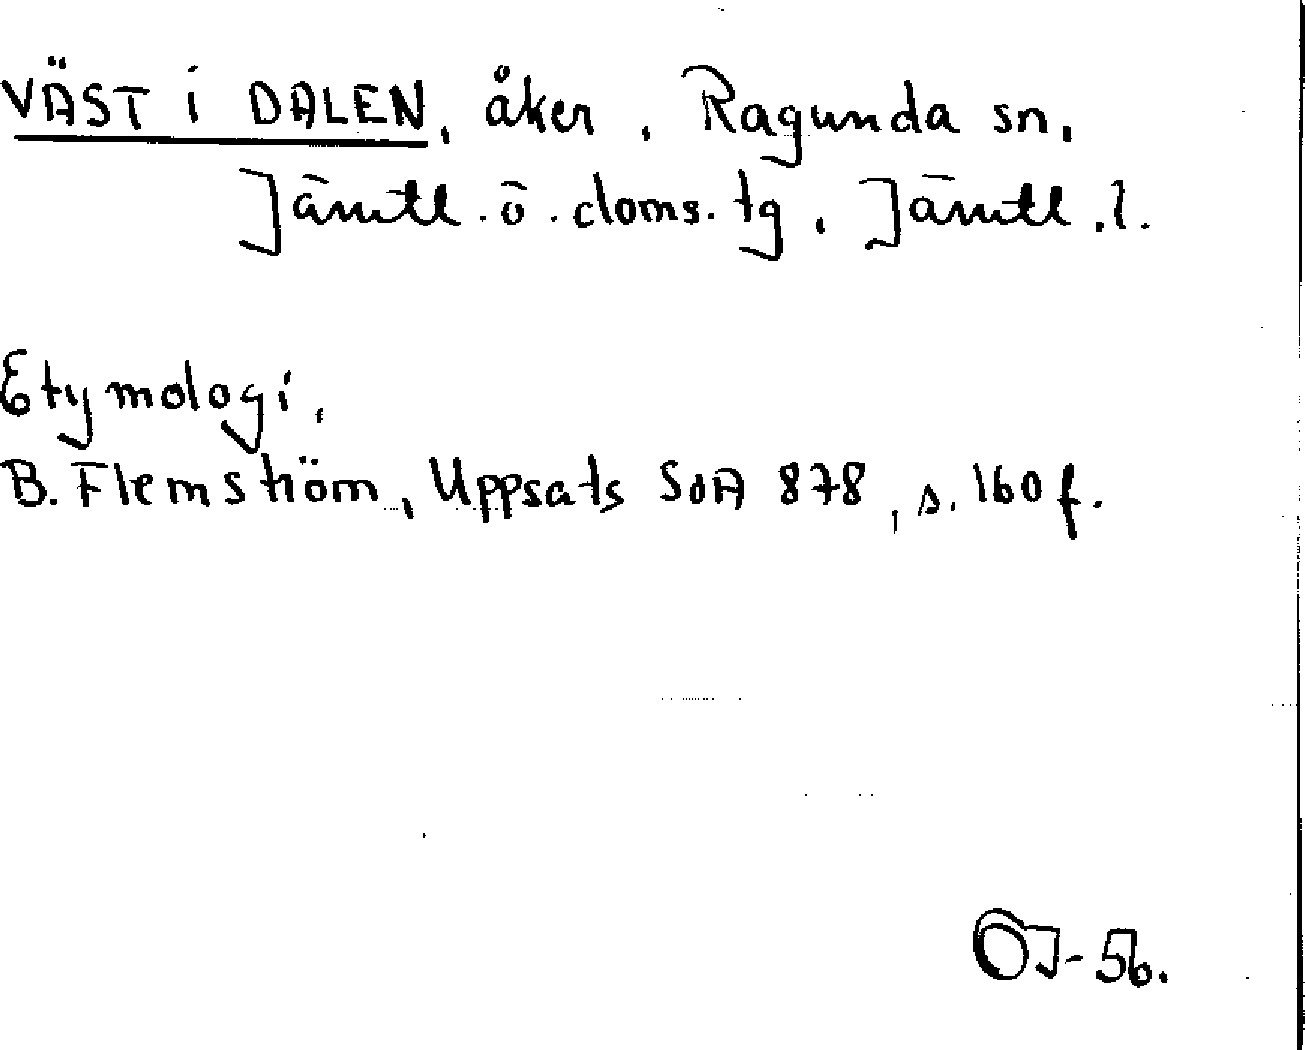 VÄST i DALEN, åker, Ragunda sn,
Jämtl. ö. doms. tg, Jämtl. l.
Etymologi,
B. Flemström, Uppsats SOA 878, s. 160 f.
OJ-56.